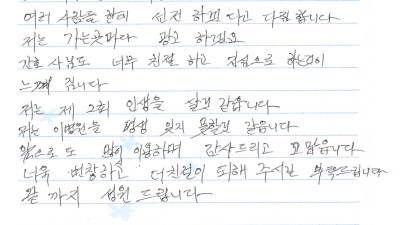 여러 사람들 한테 선전 하고 다고 다립 합니다
저는 가는곳마다 광고 하겠요
간호 사님도 너무 친절 하고 진심으로 하는것이
느껴 집니다
저는 제 2회 인생을 살것 같읍니다
저는 이병원을 평생 잊지 못할것 같읍니다
앞으로 또 많이 이용하며 감사드리고 고맙읍니다
더욱 번창하고 더친절이 되해 주시길 부탁드립니다
끝 까지 성원 드립니다